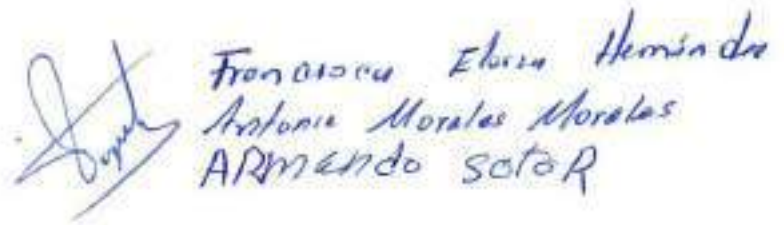 Francisca Elorza Hernández
Antonio Morales Morales
ARMANDO SOTO R